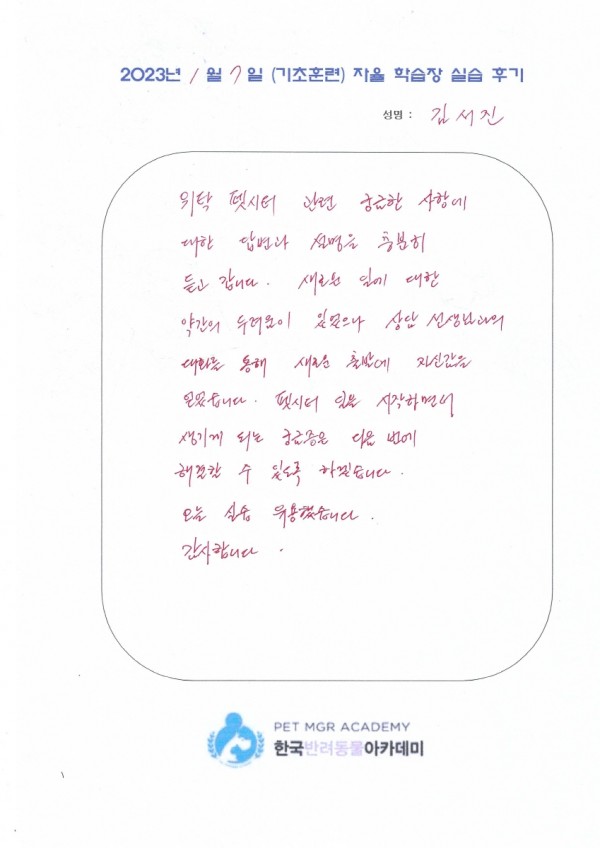 2023년 1월 7일 (기초훈련) 자율 학습장 실습 후기
성명 : 김서진
위탁 펫시터 관련 궁금한 사항에
대한 답변과 설명을 충분히
듣고 갑니다. 새로운 일에 대한
약간의 두려움이 있었으나 상담 선생님과의
대화를 통해 새로운 출발에 자신감을
얻었습니다. 펫시터 일을 시작하면서
생기게 되는 궁금증은 다음 번에
해결할 수 있도록 하겠습니다.
오늘 실습 유용했습니다.
감사합니다.
PET MGR ACADEMY
한국반려동물아카데미